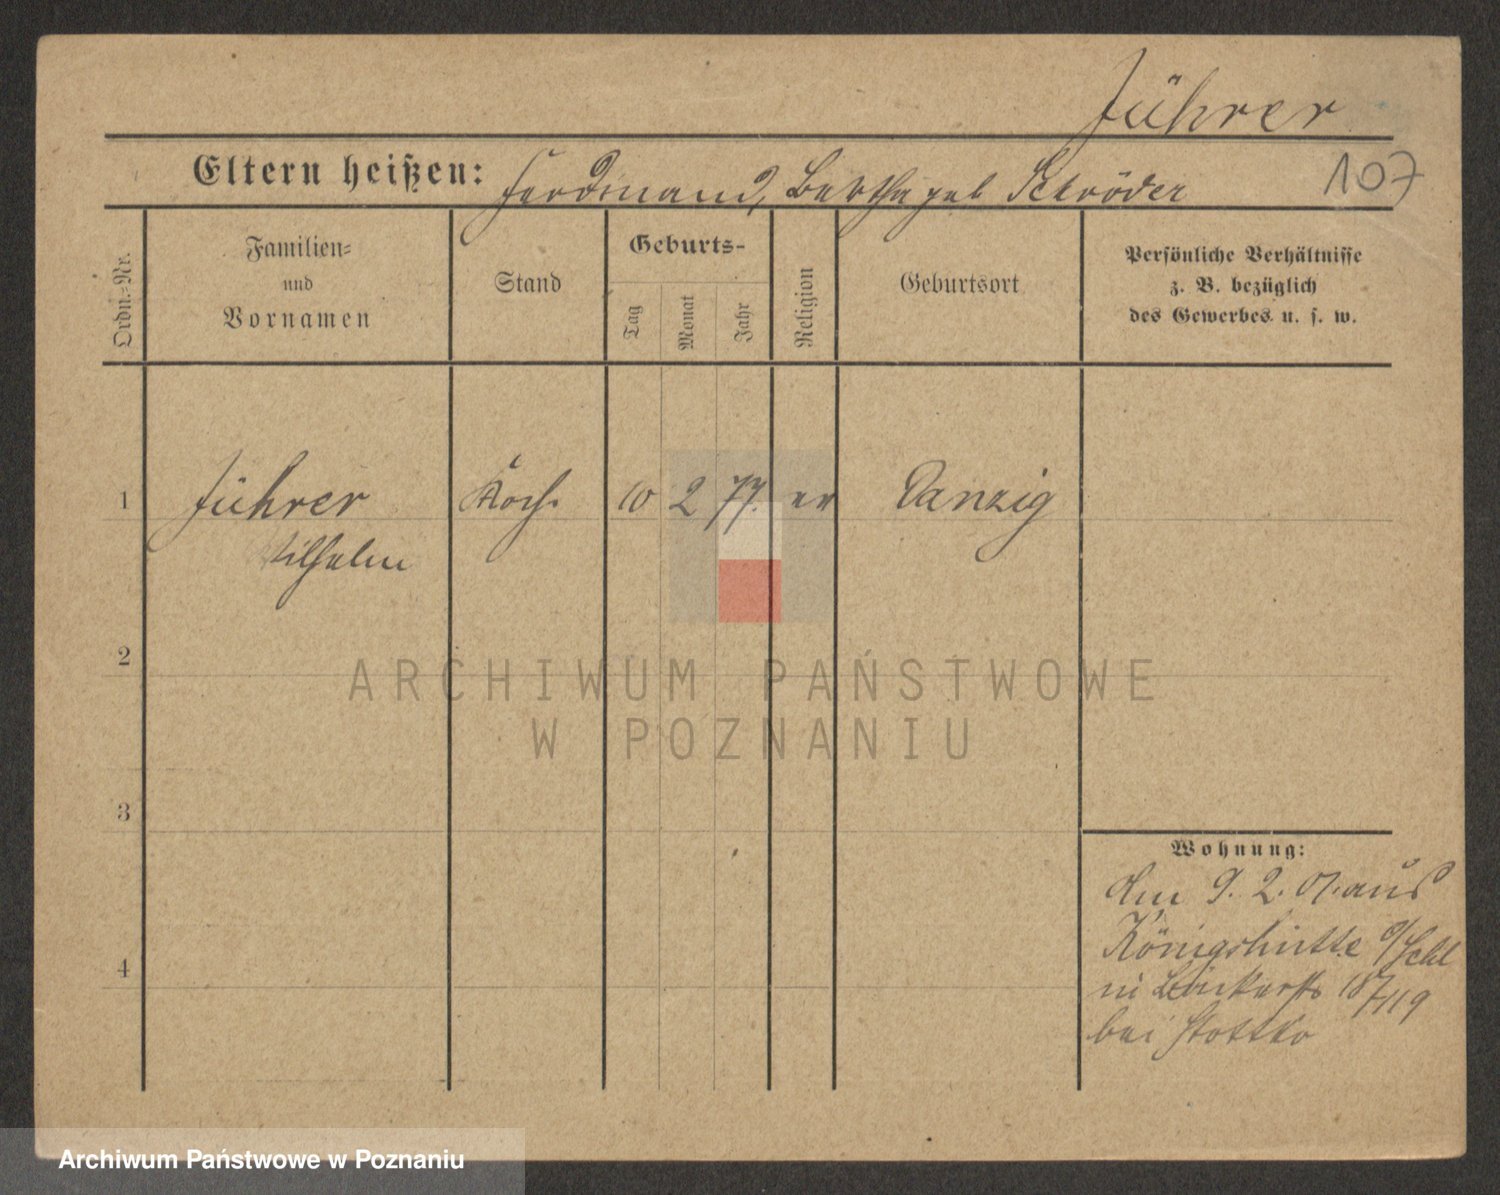 Führer
Eltern heißen: Ferdinand, Bertha geb Schröder
107
Ordn.-Nr.
Familien-
und
Vornamen
Stand
Geburts-
Tag
Monat
Jahr
Religion
Geburtsort
Persönliche Verhältnisse
z. B. bezüglich
des Gewerbes u. s. w.
1
Führer
Wilhelm
Koch
10
2
77.
ev
Danzig
2
3
4
Wohnung:
Am 9. 2. 07. aus
Königshütte o/Schl
in Bäckerstr 18
bei
ARCHIWUM PAŃSTWOWE
W POZNANIU
Archiwum Państwowe w Poznaniu